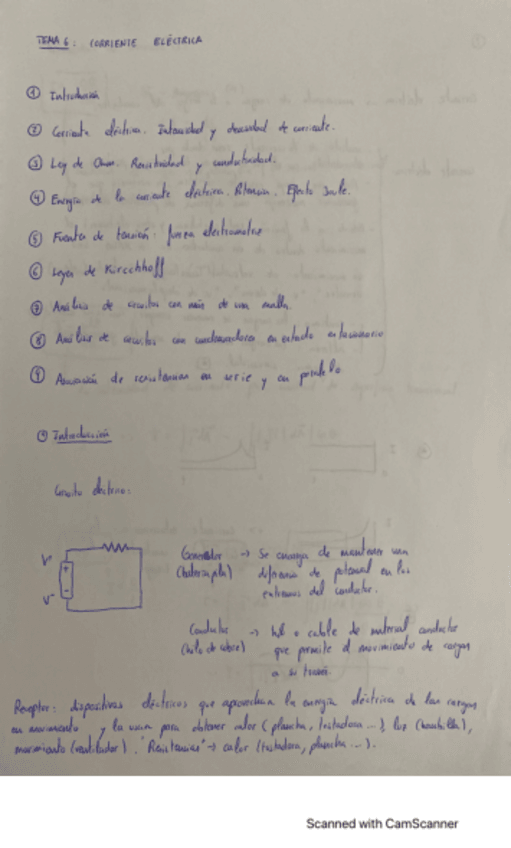 TEMA 6: CORRIENTE ELÉCTRICA
① Introducción
② Corriente eléctrica. Intensidad y densidad de corriente.
③ Ley de Ohm. Resistividad y conductividad.
④ Energía de la corriente eléctrica. Potencia. Efecto Joule.
⑤ Fuentes de tensión: fuerza electromotriz
⑥ Leyes de Kircchhoff
⑦ Análisis de circuitos con más de una malla.
⑧ Análisis de circuitos con condensadores en estado estacionario
⑨ Asociación de resistencias en serie y en paralelo
① Introducción
Circuito eléctrico:
Generador → Se encarga de mantener una
(batería, pila) diferencia de potencial en los
extremos del conductor.
V+
+
-
V-
Conductor → hilo o cable de material conductor
(hilo de cobre) que permite el movimiento de cargas
a su través.
Receptor: dispositivos eléctricos que aprovechan la energía eléctrica de las cargas
en movimiento y la usan para obtener calor (plancha, tostadora ...), luz (bombilla),
movimiento (ventilador). "Resistencias" → calor (tostadora, plancha ...).
Scanned with CamScanner